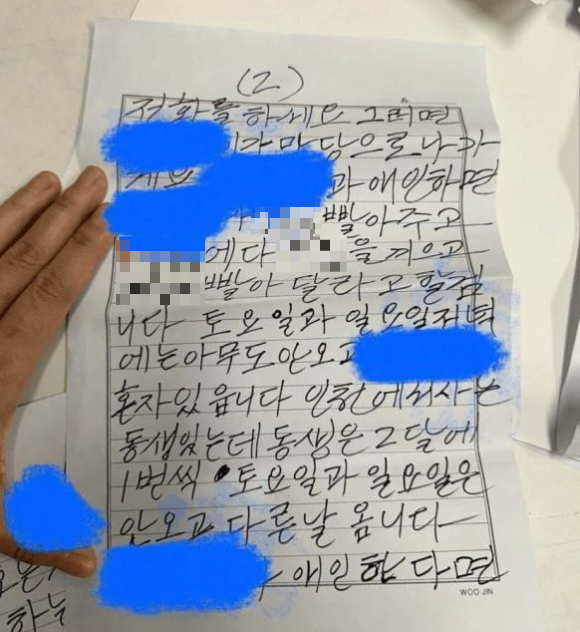 (2)
전화를 하세요 그러면
가 마당으로 나가
과 애인하면
빨아주고
에다 을 끼우고
빨아 달라고 할겁
니다 토요일과 일요일저녁
에는 아무도 안오고
혼자 있읍니다 인천에서 사는
동생있는데 동생은 2달에
1번씩 토요일과 일요일은
안오고 다른날 옵니다
애인한다면
WOO JIN
하